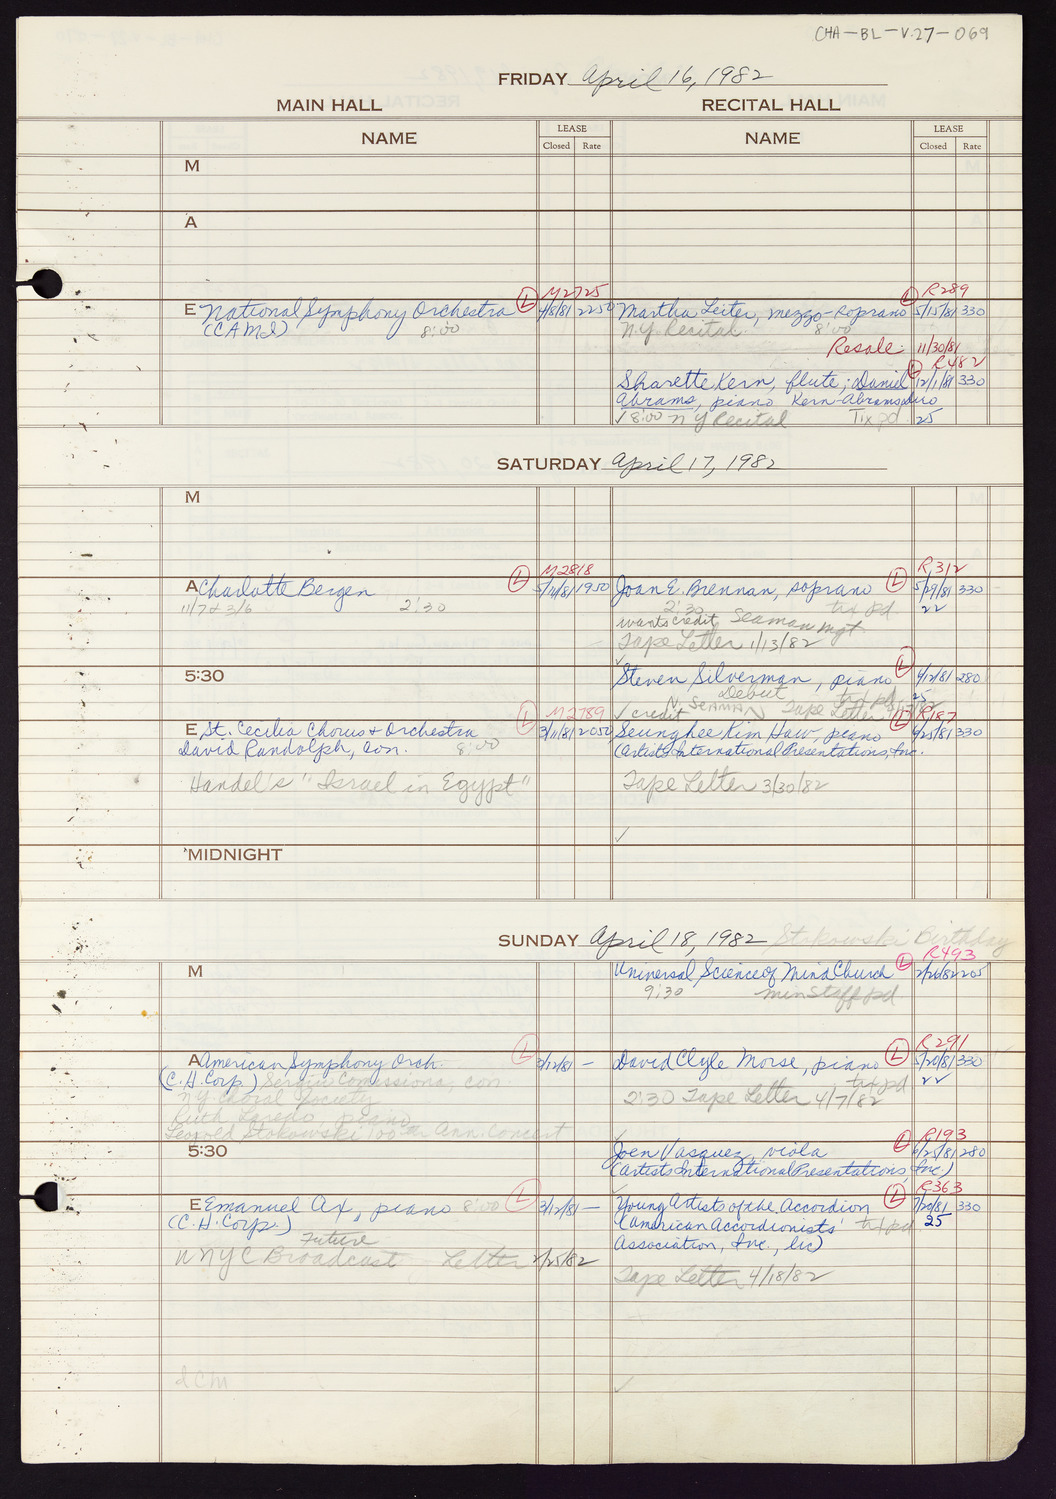 CHA-BL-V.27-069
FRIDAY April 16, 1982
MAIN HALL RECITAL HALL
NAME LEASE Closed Rate NAME LEASE Closed Rate
M
A
M2725 R289
E National Symphony Orchestra (L) 4/8/81 2250 Martha Leiter, mezzo-soprano (L) 5/15/81 330
(CAMI) 8:00 N.Y. Recital 8:00
Resale: 11/30/81
(L) R482
Sharette Kern, flute; Daniel 12/1/81 330
Abrams, piano Kern-Abrams duo
✓ 8:00 NY Recital Tix pd. 25
SATURDAY April 17, 1982
M
M2818 R312
A Charlotte Bergen (L) 5/11/81 1950 Joan E. Brennan, soprano (L) 5/29/81 330
11/7 & 3/6 2:30 2:30 tix pd 22
wants credit Seaman Mgt
Tape Letter 1/13/82
✓
5:30 Steven Silverman, piano (L) 4/12/81 280
Debut tix pd. 25
✓ credit N. SEAMAN Tape Letter
M2789 R187
E St. Cecilia Chorus & Orchestra (L) 3/11/81 2050 Seunghee Kim Haw, piano (L) 4/25/81 330
David Randolph, con. 8:00 (Artists International Presentations, Inc.
Handel's "Israel in Egypt" Tape Letter 3/30/82
✓
MIDNIGHT
SUNDAY April 18, 1982 Stokowski Birthday
R493
M Universal Science of Mind Church (L) 2/26/82 205
9:30 min Staff pd.
R291
A American Symphony Orch. (L) 3/12/81 – David Clyle Morse, piano (L) 5/20/81 330
(C.H. Corp.) Sergiu Comissiona, con. tix pd 22
NY Choral Society 2:30 Tape Letter 4/7/82
Ruth Laredo, piano
Leopold Stokowski 100th Ann. Concert ✓
R193
5:30 Joen Vasquez, viola (L) 4/25/81 280
(Artists International Presentations, Inc.)
R363
E Emanuel Ax, piano 8:00 (L) 3/12/81 – Young Artists of the Accordion (L) 7/20/81 330
(C.H. Corp.) (American Accordionists' tix pd. 25
Future Association, Inc., lic)
WNYC Broadcast Letter 2/25/82
Tape Letter 4/18/82
ICM
✓